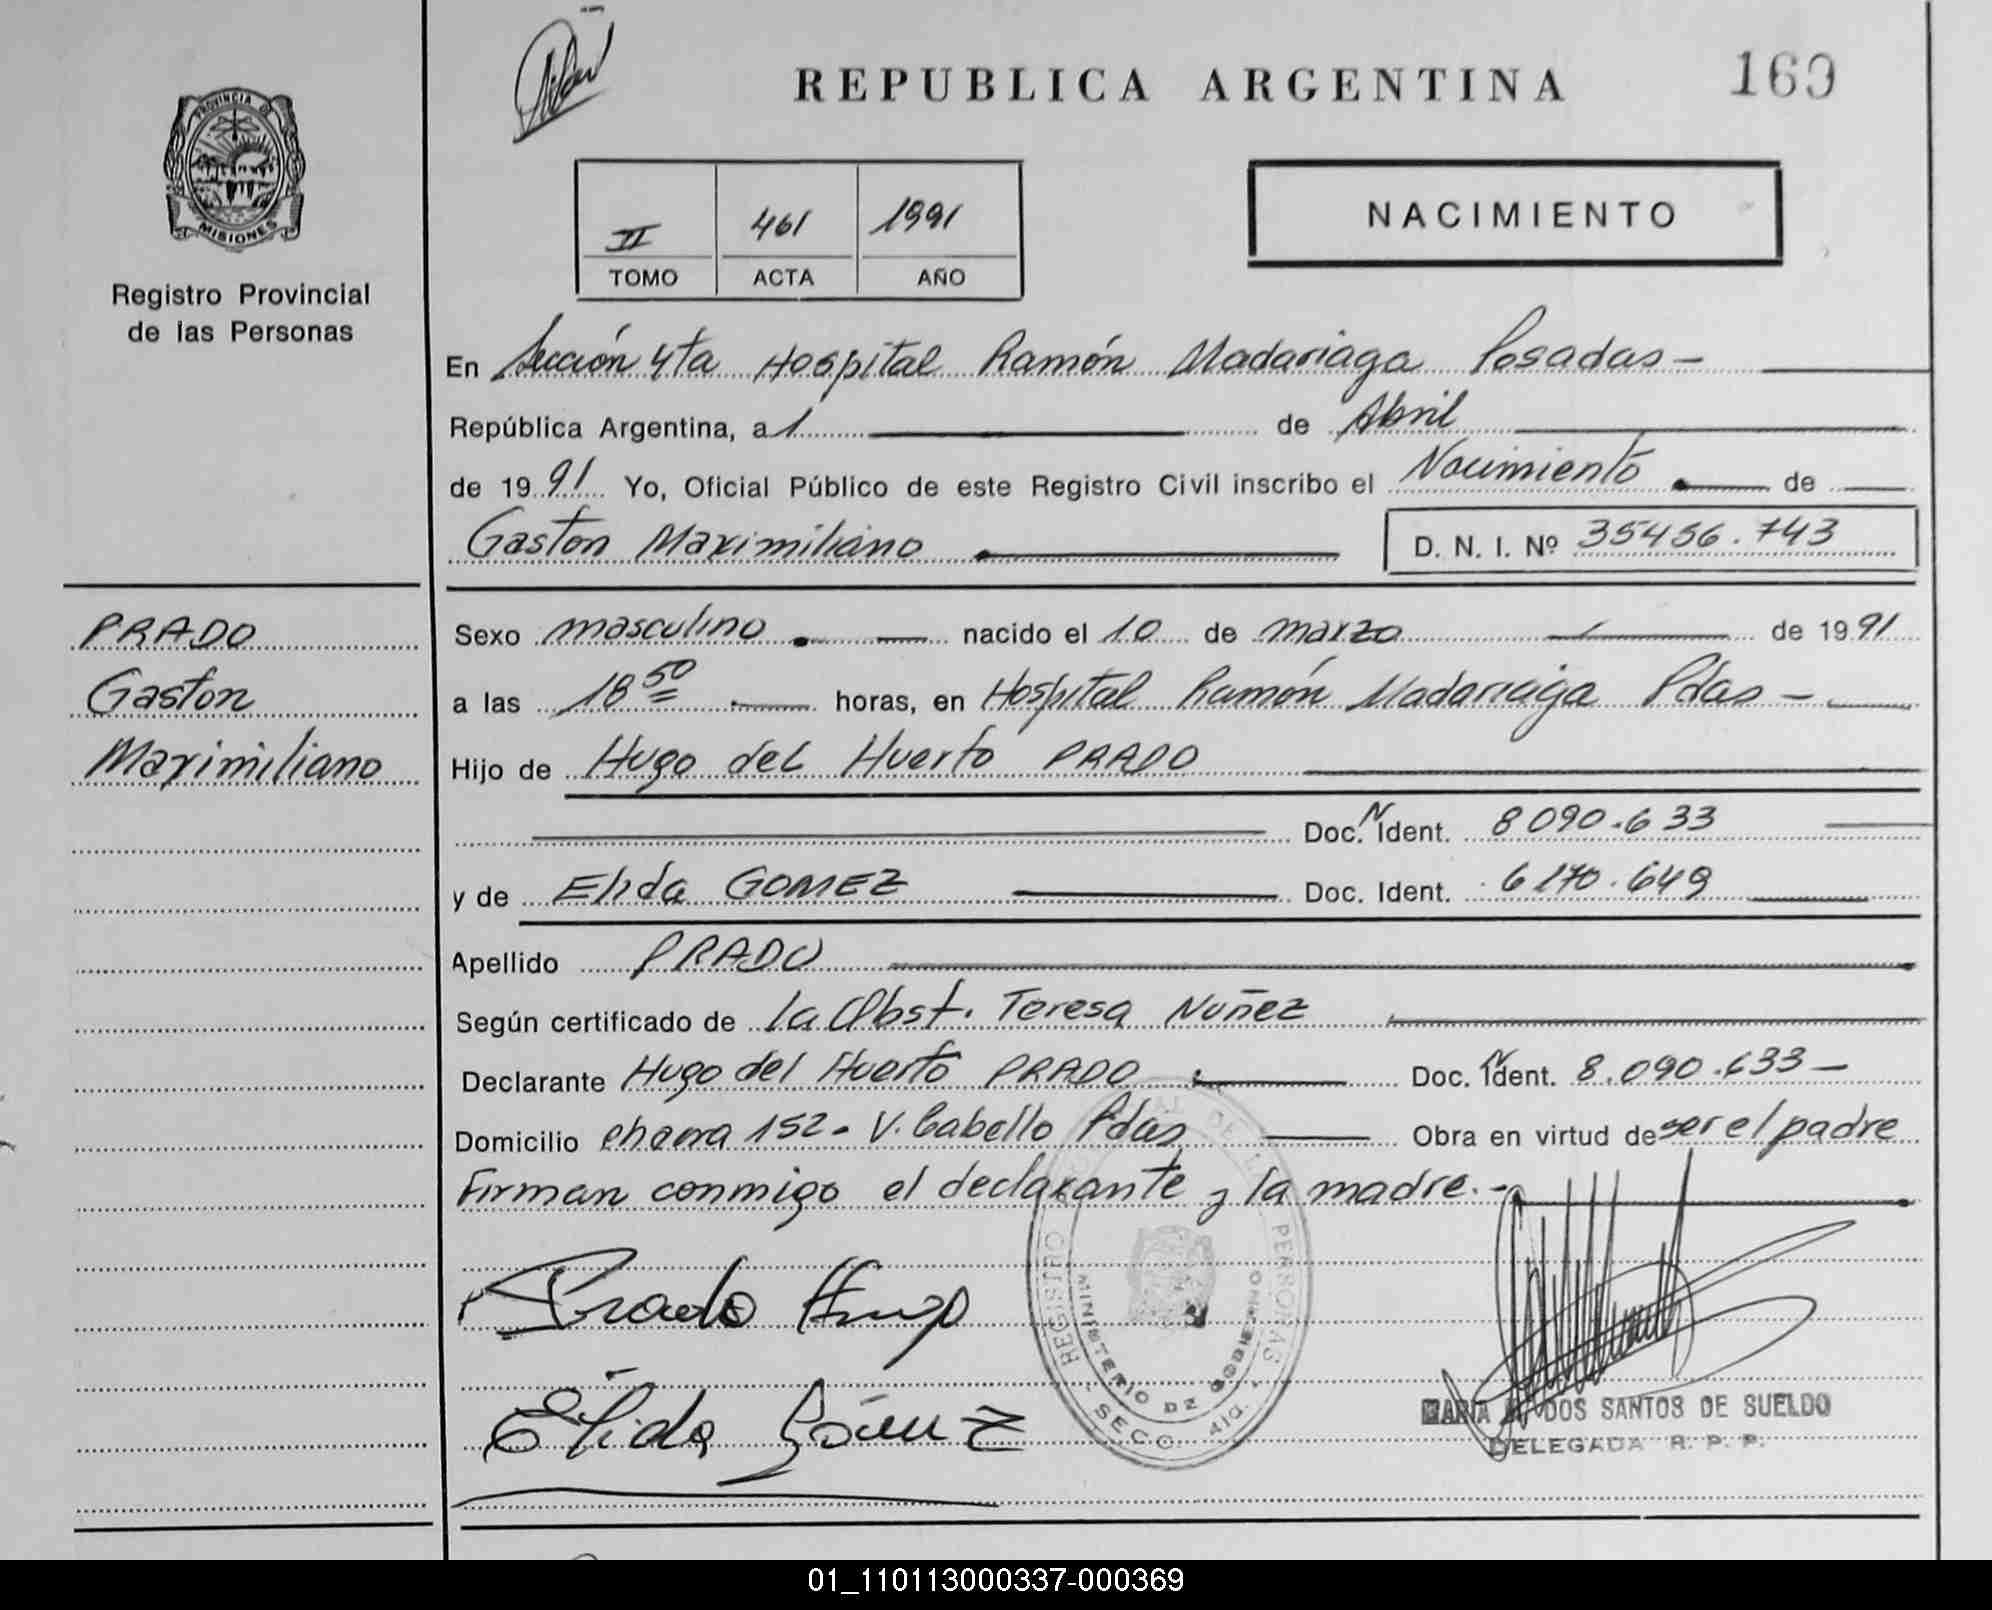 REPUBLICA ARGENTINA
169
PROVINCIA DE
MISIONES
Registro Provincial
de las Personas
II 461 1991
TOMO ACTA AÑO
NACIMIENTO
En Sección 4ta Hospital Ramón Madariaga Posadas -
República Argentina, a 1 de Abril
de 1991 Yo, Oficial Público de este Registro Civil inscribo el Nacimiento de
Gaston Maximiliano D. N. I. Nº 35456.743
PRADO
Gaston
Maximiliano
Sexo masculino nacido el 10 de marzo de 1991
a las 18 50 horas, en Hospital Ramón Madariaga Pdas -
Hijo de Hugo del Huerto PRADO
Doc. N Ident. 8 090.633
y de Elida GOMEZ Doc. Ident. 6 170.649
Apellido PRADO
Según certificado de la Obst. Teresa Nuñez
Declarante Hugo del Huerto PRADO Doc. N Ident. 8.090.633 -
Domicilio chacra 152 - V. Cabello Pdas Obra en virtud de ser el padre
Firman conmigo el declarante y la madre. -
Prado Hugo
Elida Gómez
REGISTRO DE LAS PERSONAS
MINISTERIO DE GOBIERNO
SECC. 4ta.
MARIA DOS SANTOS DE SUELDO
DELEGADA R. P. P.
01_110113000337-000369